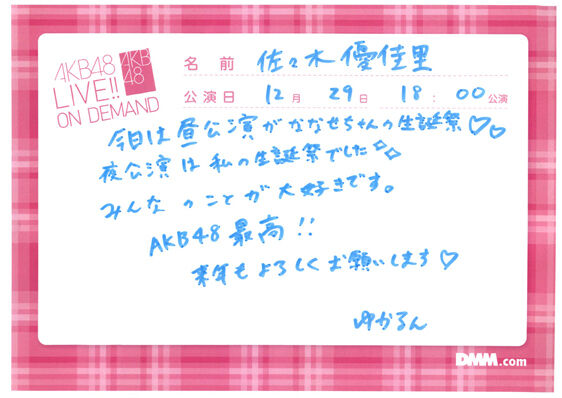 AKB48
LIVE!!
ON DEMAND
AKB
48
名前 佐々木優佳里
公演日 12月 29日 18:00公演
今日は昼公演がななせちゃんの生誕祭♡♡
夜公演は私の生誕祭でした✧✧
みんなのことが大好きです。
AKB48最高!!
来年もよろしくお願いします♡
ゆかるん
DMM.com